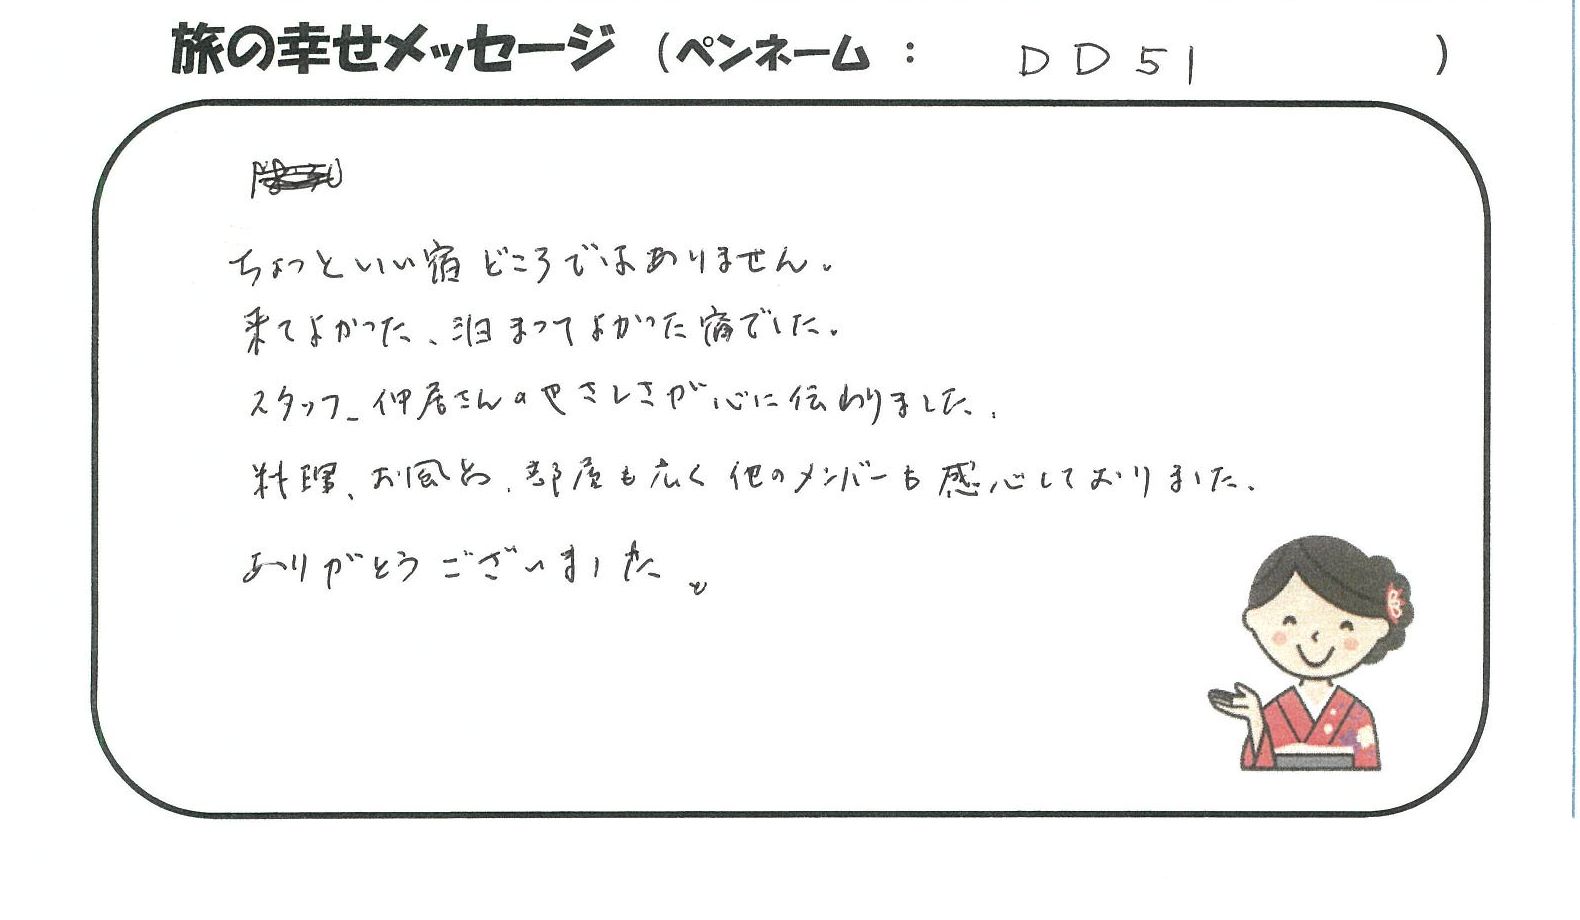 旅の幸せメッセージ（ペンネーム： DD51 ）
ちょっといい宿どころではありません。
来てよかった、泊まってよかった宿でした。
スタッフ、仲居さんのやさしさが心に伝わりました。
料理、お風呂、部屋も広く他のメンバーも感心しておりました。
ありがとうございました。